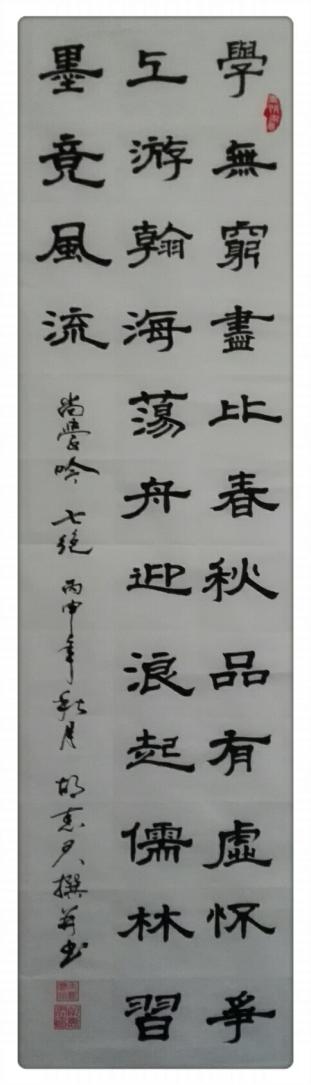 學無窮盡比春秋品有虛怀爭
上游翰海蕩舟迎浪起儒林習
墨竟風流
尚學吟 七绝 丙申年秋月 胡 撰并书